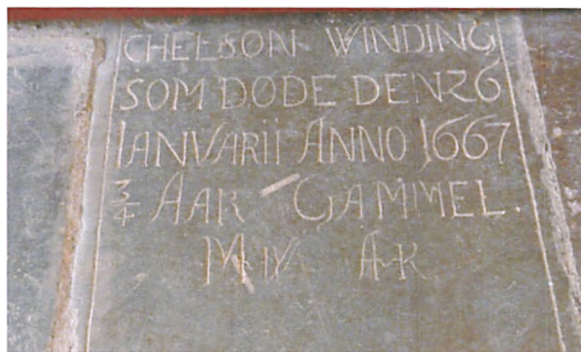 CHELSØN WINDING
SOM DØDE DEN 26
IANVARII ANNO 1667
3/4 AAR GAMMEL.